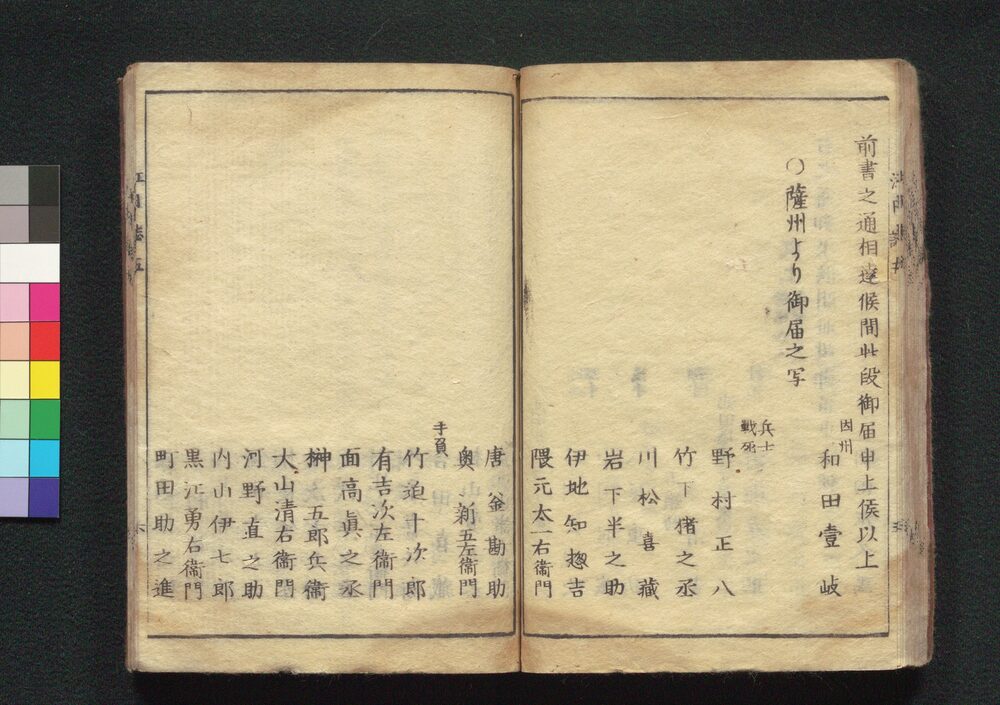 前書之通相達候間此段御届申上候以上
因州
和田壹岐
○薩州より御届之写
兵士
戦死
野村正八
竹下猪之丞
川松喜藏
岩下半之助
伊地知惣吉
隈元太一右衞門
唐釡勘助
奥新五左衞門
手負
竹迫十次郎
有吉次左衞門
面高眞之丞
榊五郎兵衞
大山清右衞門
河野直之助
内山伊七郎
黒江勇右衞門
町田助之進